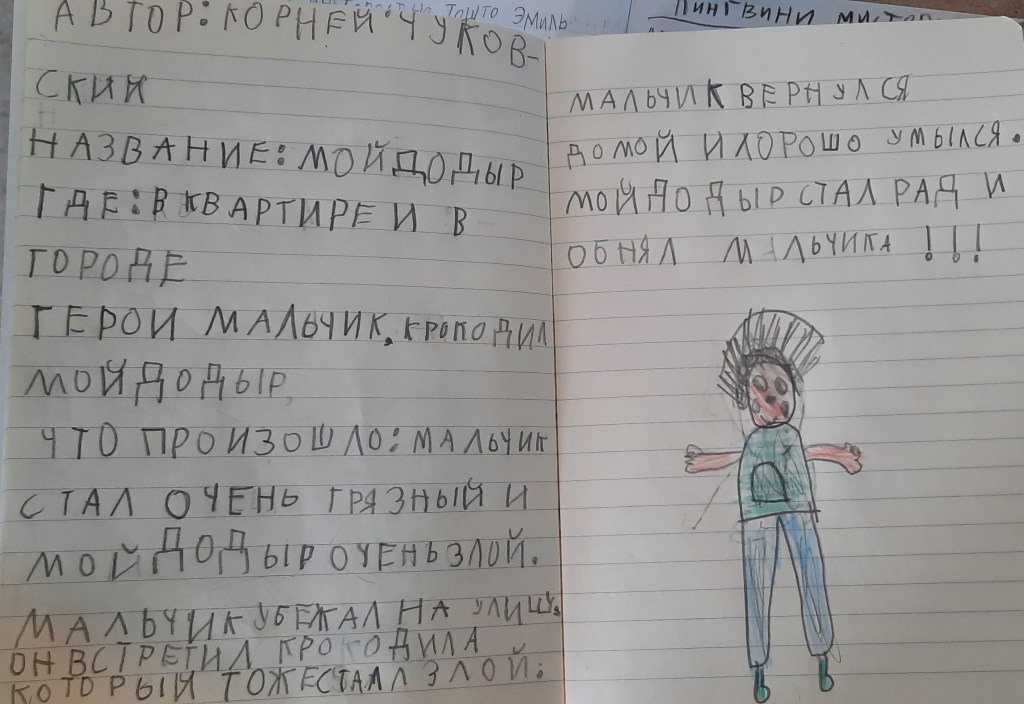 ТОШТО ЭМИЛЬ
ПИНГВИНИ
АВТОР: КОРНЕЙ ЧУКОВ-
СКИЙ
НАЗВАНИЕ: МОЙДОДЫР
ГДЕ: В КВАРТИРЕ И В
ГОРОДЕ
ГЕРОИ МАЛЬЧИК, КРОКОДИЛ
МОЙДОДЫР
ЧТО ПРОИЗОШЛО: МАЛЬЧИК
СТАЛ ОЧЕНЬ ГРЯЗНЫЙ И
МОЙДОДЫР ОЧЕНЬ ЗЛОЙ.
МАЛЬЧИК УБЕЖАЛ НА УЛИЦУ.
ОН ВСТРЕТИЛ КРОКОДИЛА
КОТОРЫЙ ТОЖЕ СТАЛЛ ЗЛОЙ.
МАЛЬЧИК ВЕРНУЛСЯ
ДОМОЙ И ХОРОШО УМЫЛСЯ.
МОЙДОДЫР СТАЛ РАД И
ОБНЯЛ МАЛЬЧИКА!!!